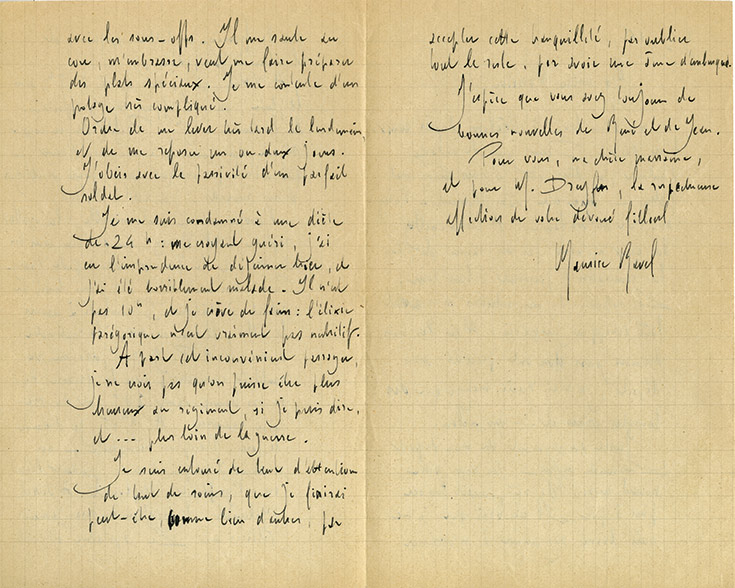 avec les sous-offs. Il me saute au
cou, m'embrasse, veut me faire préparer
des plats spéciaux. Je me contente d'un
potage très compliqué.
Ordre de me lever très tard le lendemain,
et de me reposer un ou deux jours.
J'obéis avec la passivité d'un parfait
soldat.
Je me suis condamné à une diète
de 24 h : me croyant guéri, j'ai
eu l'imprudence de déjeuner hier, et
j'ai été horriblement malade. Il n'est
pas 10h, et je crève de faim : l'élixir
parégorique n'est vraiment pas nutritif.
A part cet inconvénient passager,
je ne crois pas qu'on puisse être plus
heureux au régiment, si je puis dire,
et ... plus loin de la guerre.
Je suis entouré de tant d'attentions
de tant de soins, que je finirai
peut-être, comme bien d'autres, par
accepter cette tranquillité, par oublier
tout le reste, par avoir une âme d'embusqué.
J'espère que vous avez toujours de
bonnes nouvelles de René et de Jean.
Pour vous, ma chère marraine,
et pour M. Dreyfus, la respectueuse
affection de votre dévoué filleul
Maurice Ravel